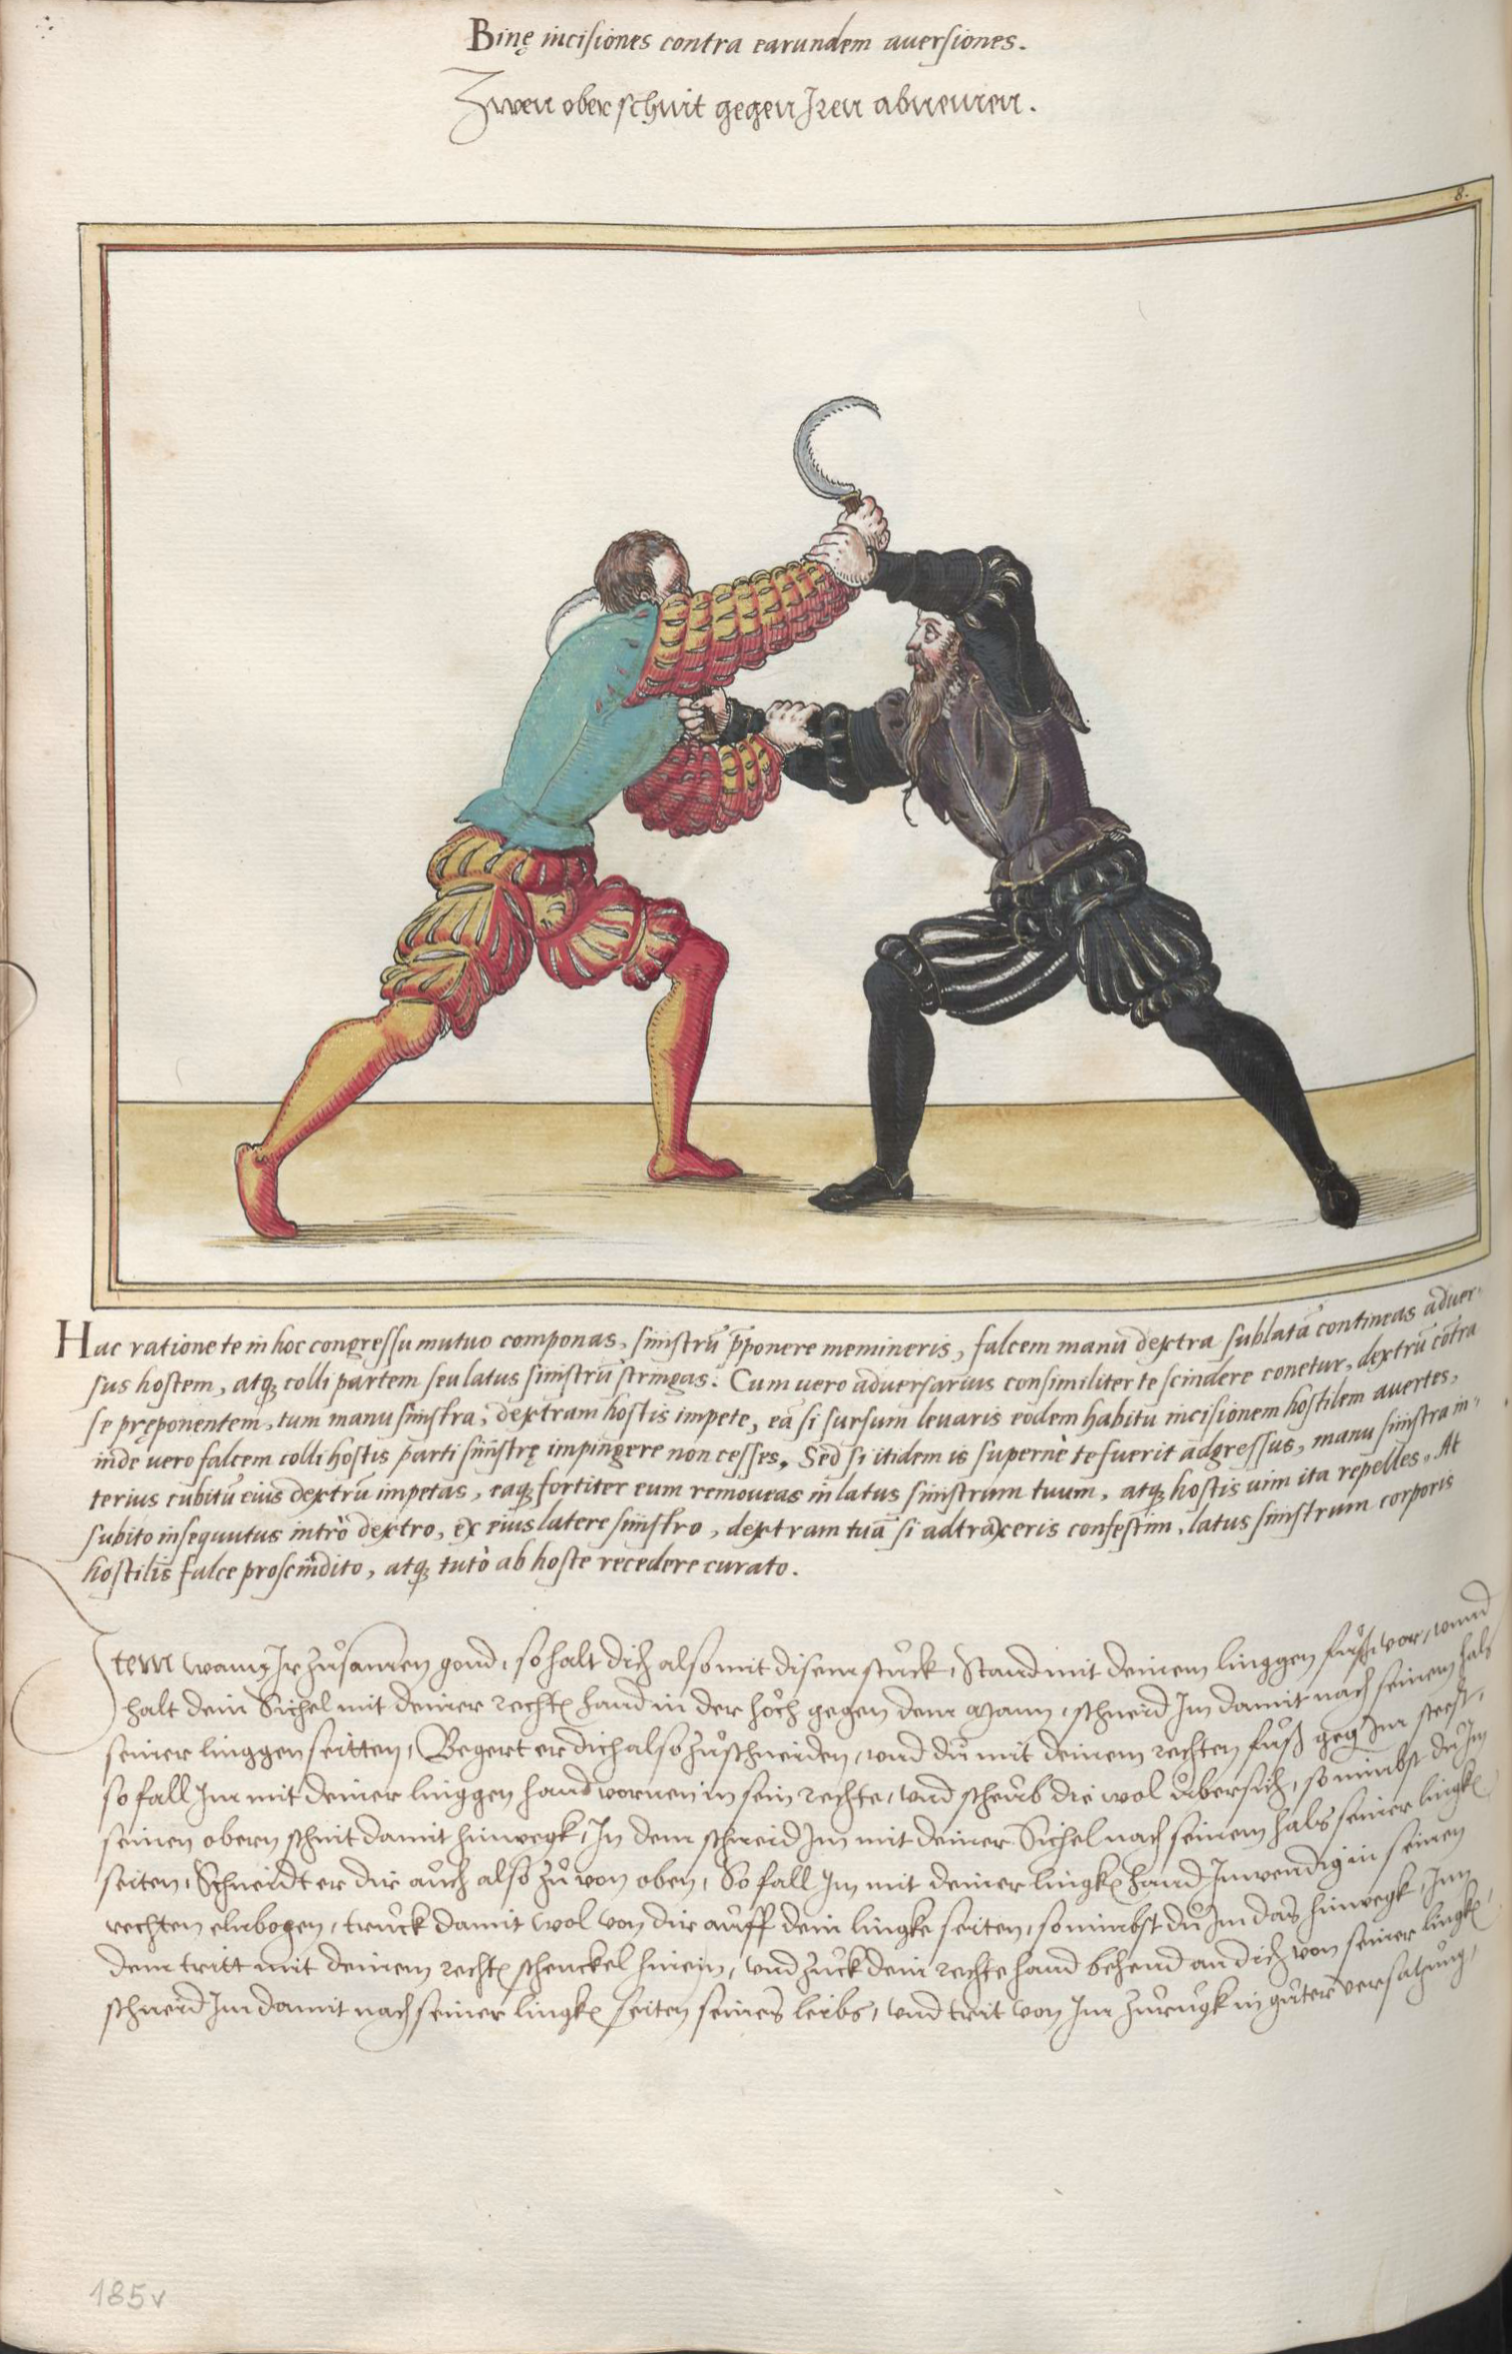 Binę incisiones contra earundem auersiones.
Zwen ober schnit gegen Iren abnemen.
8.
Hac ratione te in hoc congressu mutuo componas, sinistrū p̄ponere memineris, falcem manu dextra sublatā contineas aduer-
sus hostem, atq; colli partem seu latus sinistrū stringas. Cum uero aduersarius consimiliter te scindere conetur, dextrū cōtra
se pręponentem, tum manu sinistra, dextram hostis impete, eā si sursum leuaris eodem habitu incisionem hostilem auertes,
inde uero falcem colli hostis parti sinistrę impingere non cesses. Sed si itidem is supernè te fuerit adgressus, manu sinistra in-
terius cubitū eius dextrū impetas, eaq; fortiter eum remoueas in latus sinistrum tuum, atq; hostis uim ita repelles. At
subito insequutus intrò dextro, ex eius latere sinistro, dextram tuā si adtraxceris confestim, latus sinistrum corporis
hostilis falce proscindito, atq; tutò ab hoste recedere curato.
Item wann Ir zůsamen gond, so halt dich also mit disem stuck, Stand mit deinem linggen fůß vor, vnnd
halt dein Sichel mit deiner rechtē hand in der höch gegen dem Mann, schneid Im damit nach seinem hals
seiner linggen seitten, Begert er dich also zůschneiden, vnd du mit deinem rechten fůß gegē Im steest,
so fall Im mit deiner linggen hand vornen in sein rechte, vnd scheub die wol übersich, so nimbst du Im
seinen obern schnit damit hinwegk, In dem schneid Im mit deiner Sichel nach seinem hals seiner lingkē
seiten, Schneidt er dir auch also zů von oben, So fall Im mit deiner lingkē hand Inwendig in seinen
rechten elnbogen, truck damit wol von dir auff dein lingke seiten, so nimbst du Im das hinwegk, Inn
dem tritt mit deinem rechtē schenckel hinein, vnd zuck dein rechte hand behend an dich von seiner lingkē,
schneid Im damit nach seiner lingkē seiten seines leibs, vnd trit von Im zurugk in gůter versatzung,
185v